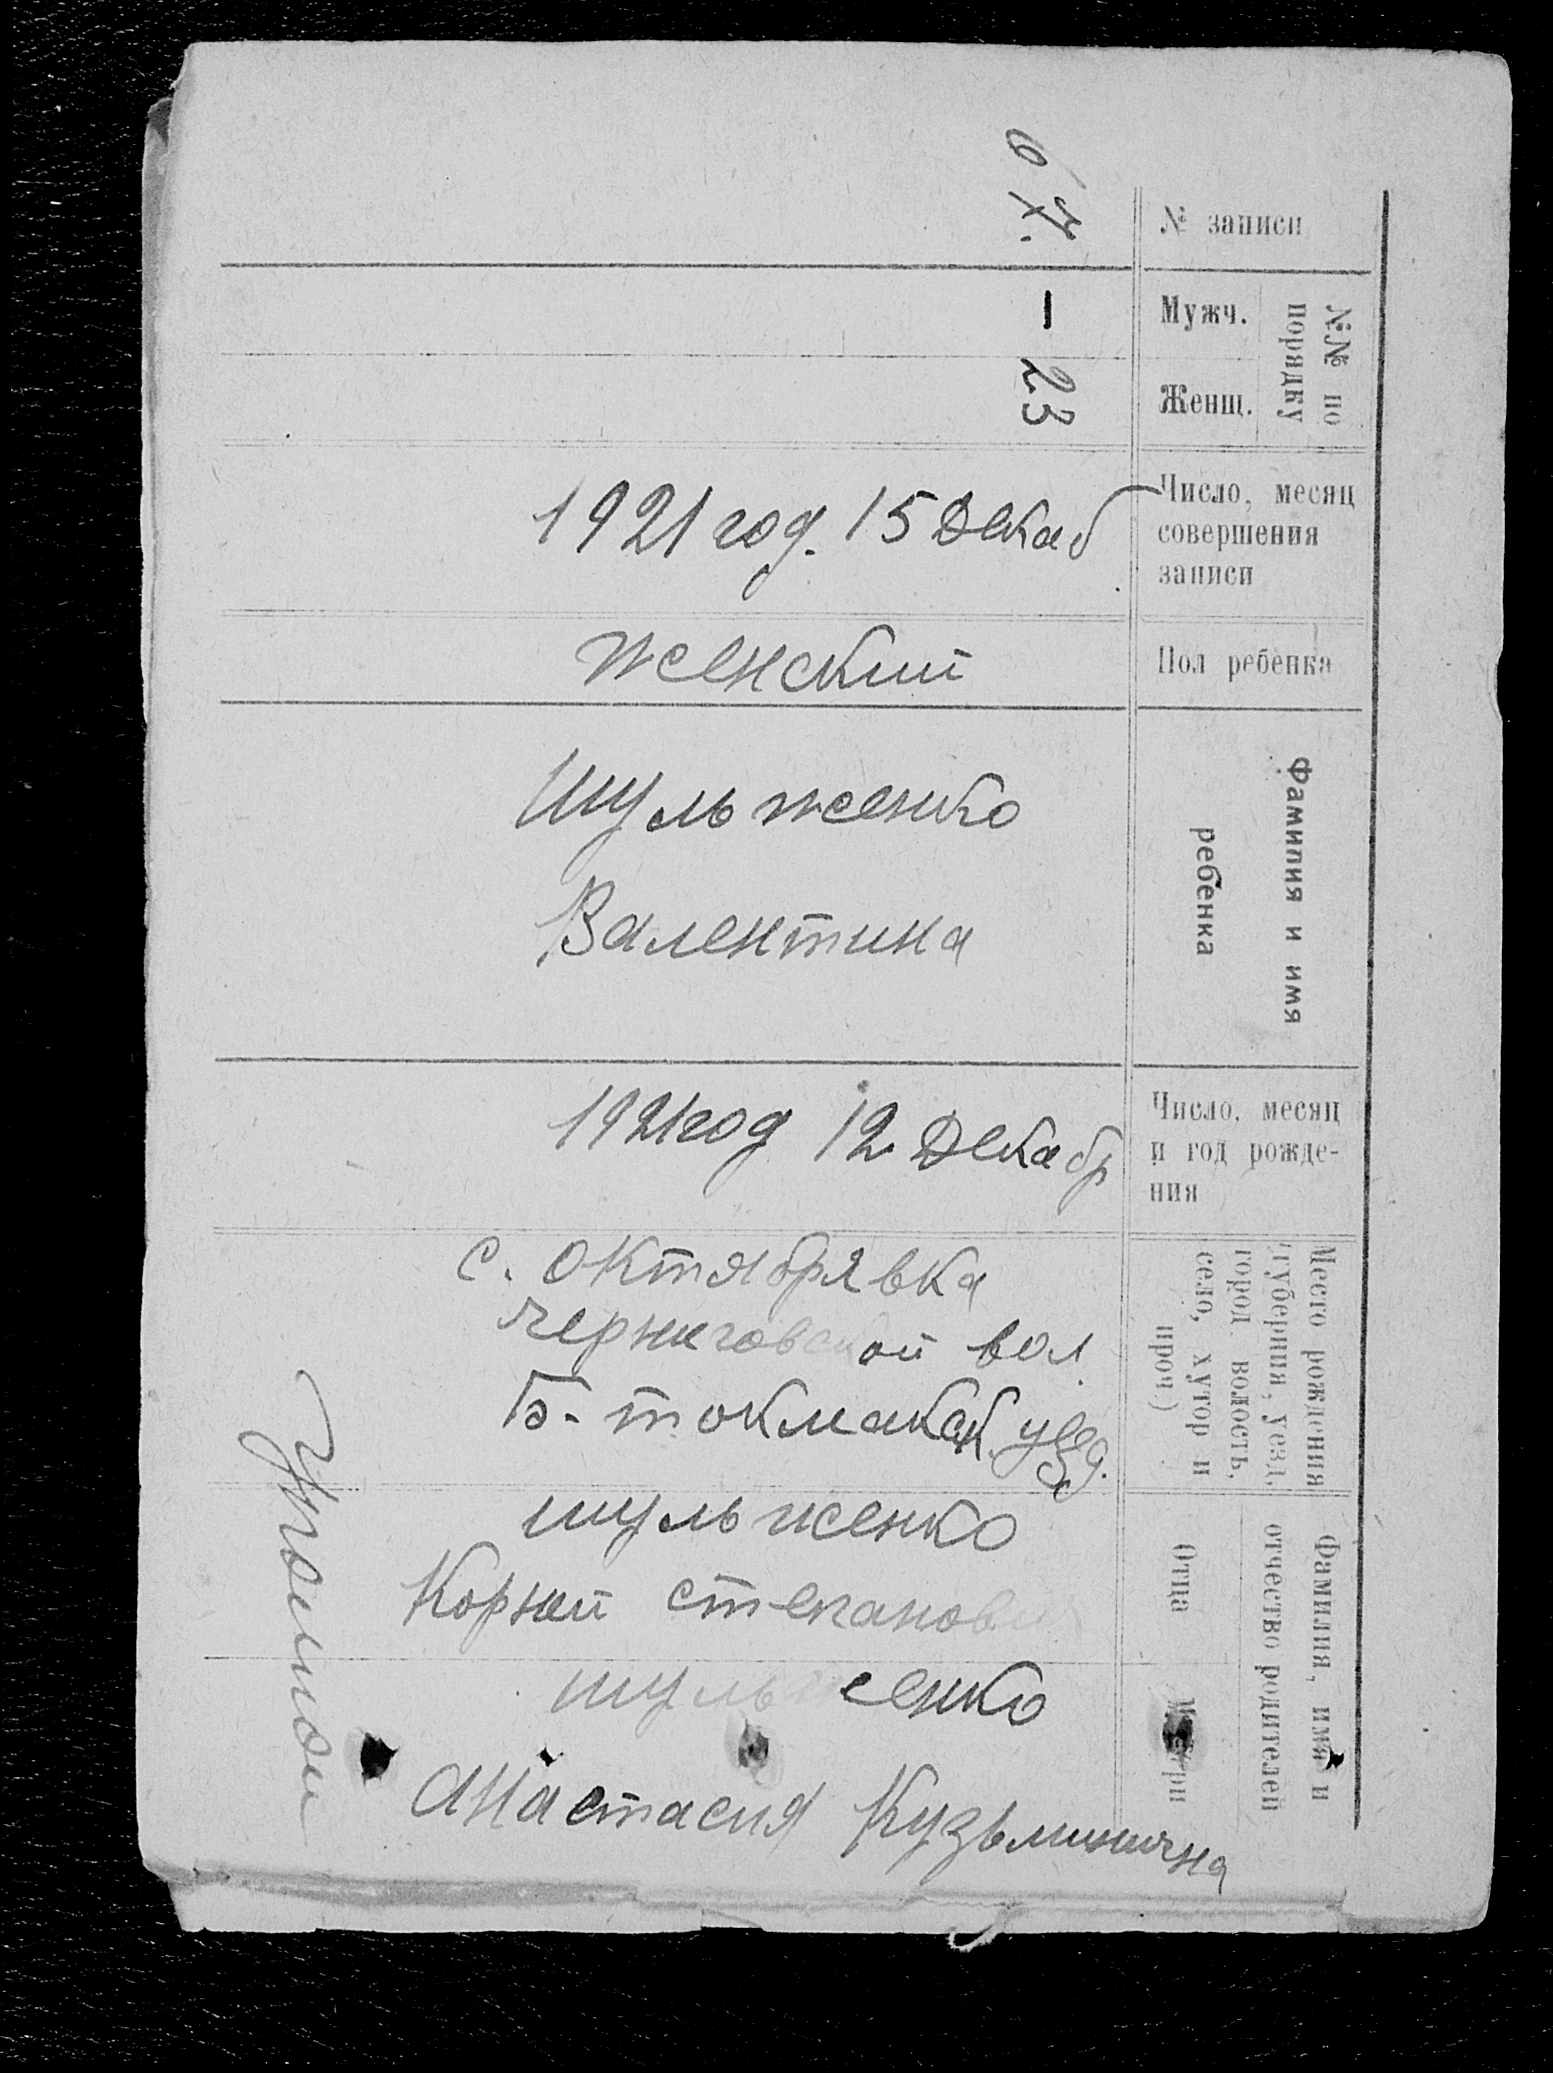 № записи
67.
№№ по
порядку
Мужч.
–
Женщ.
23
Число, месяц
совершения
записи
1921 год. 15 Декаб
Пол ребенка
женский
Фамилия и имя
ребенка
Шульженко
Валентина
Число, месяц
и год рожде-
ния
1921 год 12 Декабр
Место рождения
(губерния, уезд,
город, волость,
село, хутор и
проч.)
с. Октябрявка
Черниговской вол.
Б-токмакск. уезд.
Фамилия, имя и
отчество родителей
Отца
шульженко
Корней степанов
Матери
шульженко
Анастасия Кузьминична